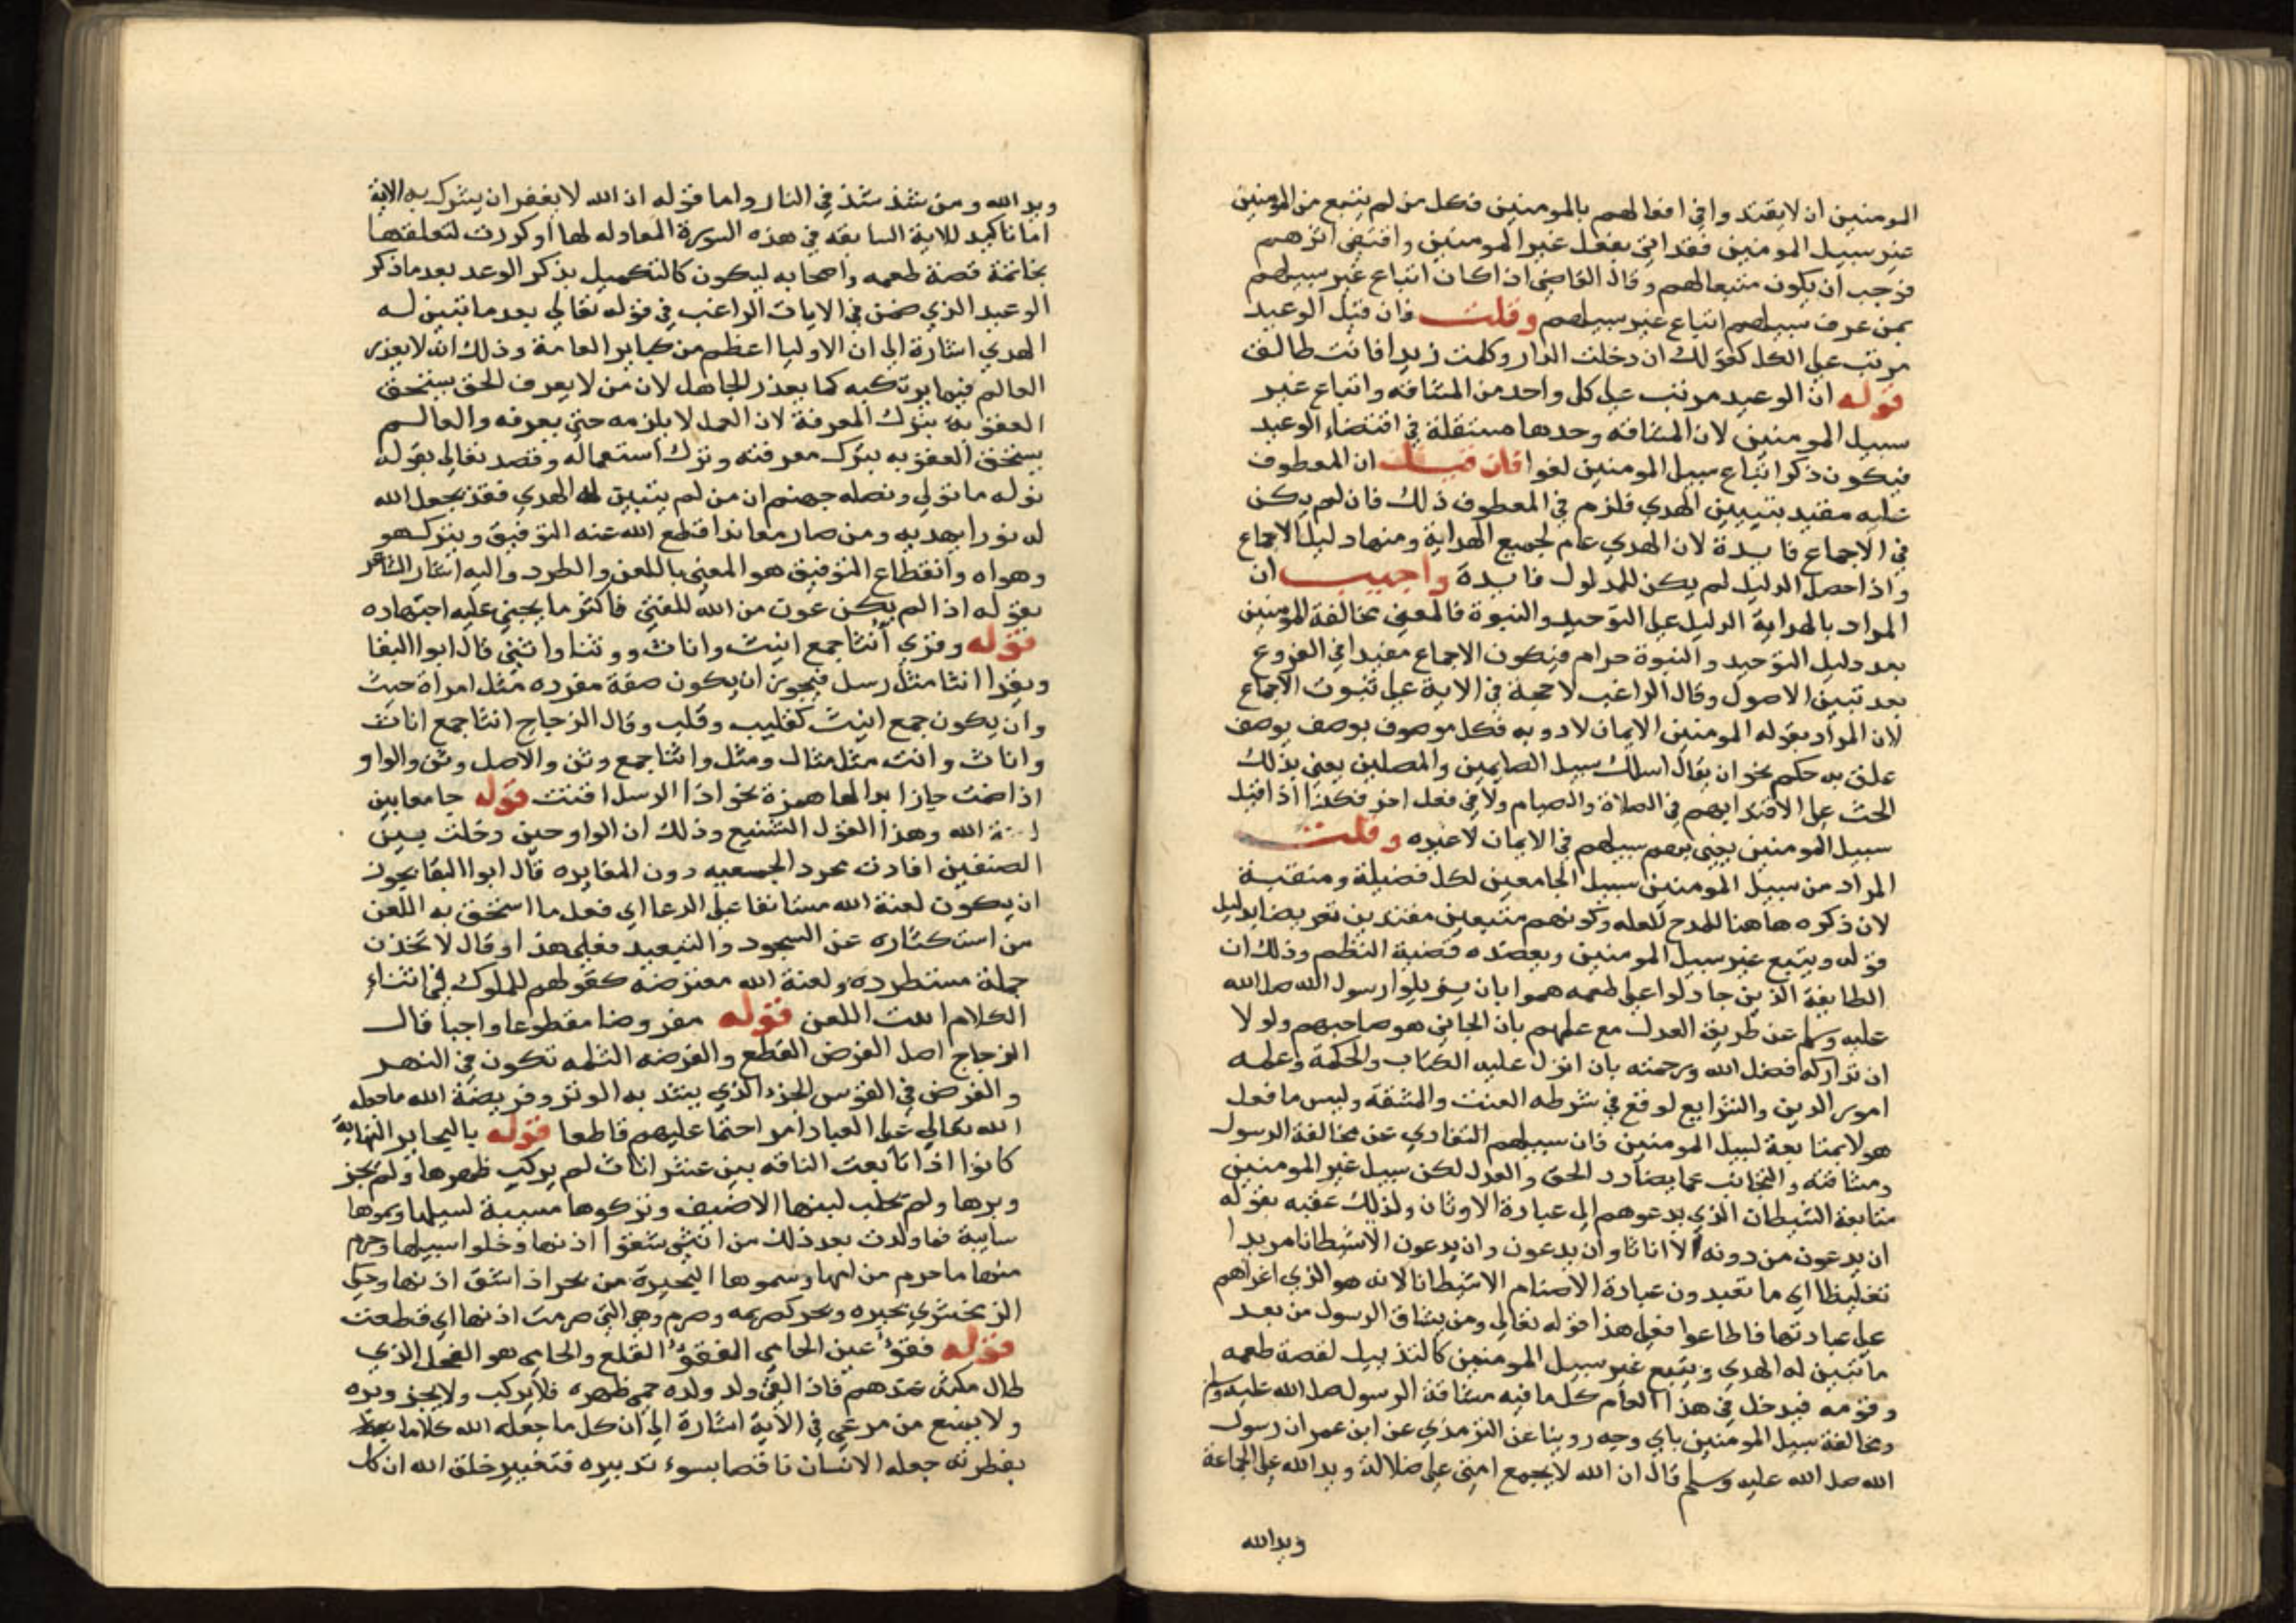 المومنين ان لا يقتدوا في افعالهم بالمومنين فكل من لم يتبع من المومنين
غير سبيل المومنين فقد اتى بفعل غير المومنين واقتفى اثرهم
فوجب ان يكون متبعا لهم وقال القاضي اذا كان اتباع غير سبيلهم
ممن عرف سبيلهم اتباع غير سبيلهم وقلت فان قيل الوعيد
مرتب على الكل كقولك ان دخلت الدار وكلمت زيدا فانت طالق
قوله ان الوعيد مرتب على كل واحد من المشاقه واتباع غير
سبيل المومنين لان المشاقه وحدها مستقلة في اقتضاء الوعيد
فيكون ذكر اتباع سبيل المومنين لغوا فان قيل ان المعطوف
عليه مقيد بتبيين الهدي فلزم في المعطوف ذلك فان لم يكن
في الاجماع فايدة لان الهدي عام لجميع الهداية ومنها دليل الاجماع
واذا حصل الدليل لم يكن للمدلول فايدة واجيب ان
المراد بالهداية الدليل على التوحيد والنبوة فالمعنى مخالفة المومنين
بعد دليل التوحيد والنبوة حرام فيكون الاجماع مفيدا في الفروع
بعد تبين الاصول وقال الراغب لا حجة في الاية على ثبوت الاجماع
لان المراد بقوله المومنين الايمان لا دويه فكل موصوف بوصف يوصف
علق به حكم نحو ان يقال اسلك سبيل الصايمين والمصلين يعني بذلك
الحث على الاقتدا بهم في الصلاة والصيام ولا في فعل اخر فكذا اذا قيل
سبيل المومنين يعني بهم سبيلهم في الايمان لا غيره وقلت
المراد من سبيل المومنين سبيل الجامعين لكل فضيلة ومنقبة
لان ذكره هاهنا للمدح للعله وكونهم متبعين مقتدين تعريضا بدليل
قوله ويتبع غير سبيل المومنين ويعضده قضية النظم وذلك ان
الطايفة الذين جادلوا على طعمه هموا بان يزيلوا رسول الله صلى الله
عليه وسلم عن طريق العدل مع علمهم بان الجاني هو صاحبهم ولولا
ان تداركه فضل الله ورحمته بان انزل عليه الكتاب والحكمة وعلمه
امور الدين والشرايع لوقع في شرطه العنت والمشقة وليس ما فعل
هولا بمتابعة لسبيل المومنين فان سبيلهم التفادي عن مخالفة الرسول
ومشاقته والتجانب عما يضادد الحق والعدل لكن سبيل غير المومنين
متابعة الشيطان الذي يدعوهم الى عبادة الاوثان ولذلك عقبه بقوله
ان يدعون من دونه الا اناثا وان يدعون وان يدعون الا شيطانا مريدا
تغليظا اي ما تعبدون عبادة الاصنام الا شيطانا لانه هو الذي اغراهم
على عبادتها فاطاعوا فعلى هذا قوله تعالي ومن يشاقق الرسول من بعد
ما تبين له الهدي ويتبع غير سبيل المومنين كالتذييل لقصة طعمه
وقومه فيدخل في هذا العام كل ما فيه مشاقة الرسول صلى الله عليه وسلم
ومخالفة سبيل المومنين باي وجه روينا عن الترمذي عن ابن عمر ان رسول
الله صلى الله عليه وسلم قال ان الله لا يجمع امتي على ضلالة ويد الله على الجماعة
ويد الله
ويد الله ومن شذ شذ في النار واما قوله ان الله لا يغفر ان يشرك به الاية
اما تاكيد للاية السابقه في هذه السورة المعادله لها او كررت لتعلقها
بخاتمة قصة طعمه واصحابه ليكون كالتكميل بذكر الوعد بعد ما ذكر
الوعيد الذي ضمن في الايات الراغب في قوله تعالي بعد ما تبين له
الهدي اشارة الى ان الاوليا اعظم من كباير العامة وذلك انه لا يعذر
العالم فيما يرتكبه كما يعذر الجاهل لان من لا يعرف الحق يستحق
العقوبه بترك المعرفة لان العمل لا يلزمه حتى يعرفه والعالم
يستحق العقوبه بترك معرفته وترك استعماله وقصد تعالى بقوله
نوله ما تولي ونصله جهنم ان من لم يتبين له الهدي فقد يجعل الله
له نورا يهديه ومن صار معاندا قطع الله عنه التوفيق ويتركه هو
وهواه وانقطاع التوفيق هو المعني باللعن والطرد واليه اشار الشاعر
بقوله اذا لم يكن عون من الله للفتى فاكثر ما يجني عليه اجتهاده
قوله وقري أنثا جمع انيث واناث ووثنا واثنى قال ابوا البقا
ويقرا انثا مثل رسل فيجوز ان يكون صفة مفرده مثل امراة حيث
وان يكون جمع انيث كقليب وقلب وقال الزجاج انثا جمع اناث
واناث وانث مثل مثال ومثل واثنا جمع وثن والاصل وثن والواو
اذا ضمت جاز ابدالها همزة نحو اذا الرسل اقتت قوله جامعا بين
لعنة الله وهذا القول الشنيع وذلك ان الواو حين دخلت بين
الصنفين افادت مجرد الجمعيه دون المغايره قال ابوا البقا يجوز
ان يكون لعنة الله مستانفا على الدعا اي فعل ما استحق به اللعن
من استكثاره عن السجود والتبعيد فعلى هذا وقال لاتخذن
جملة مستطرده ولعنة الله معترضه كقولهم للملوك في اثناء
الكلام ابيت اللعن قوله مفروضا مقطوعا واجبا قال
الزجاج اصل الفرض القطع والفرضه الثلمه تكون في النهر
والفرض في القوس الحز الذي يشد به الوتر وفريضة الله ما جعله
الله تعالي على العباد امرا حتما عليهم قاطعا قوله بالبحاير النهاية
كانوا اذا تابعت الناقه بين عشر اناث لم يركب ظهرها ولم يجز
وبرها ولم يحلب لبنها الا ضيف وتركوها مسيبة لسبيلها وسموها
سايبة فما ولدت بعد ذلك من انثى شقوا اذنها وخلوا سبيلها وحرم
منها ما حرم من امها وسموها البحيرة من بحر اذا شق اذنها وحكى
الزمخشري بحيره وبحر كصريمه وصرم وهي التي صرمت اذنها اي قطعت
قوله فقؤ عين الحامي الفقؤ القلع والحامي هو الفحل الذي
طال مكثه عندهم فاذا لقح ولد ولده حمي ظهره فلا يركب ولا يجز وبره
ولا يمنع من مرعى في الاية اشارة الى ان كل ما جعله الله كاملا
بفطرته جعله الانسان ناقصا بسوء تدبيره فتغيير خلق الله ان كل